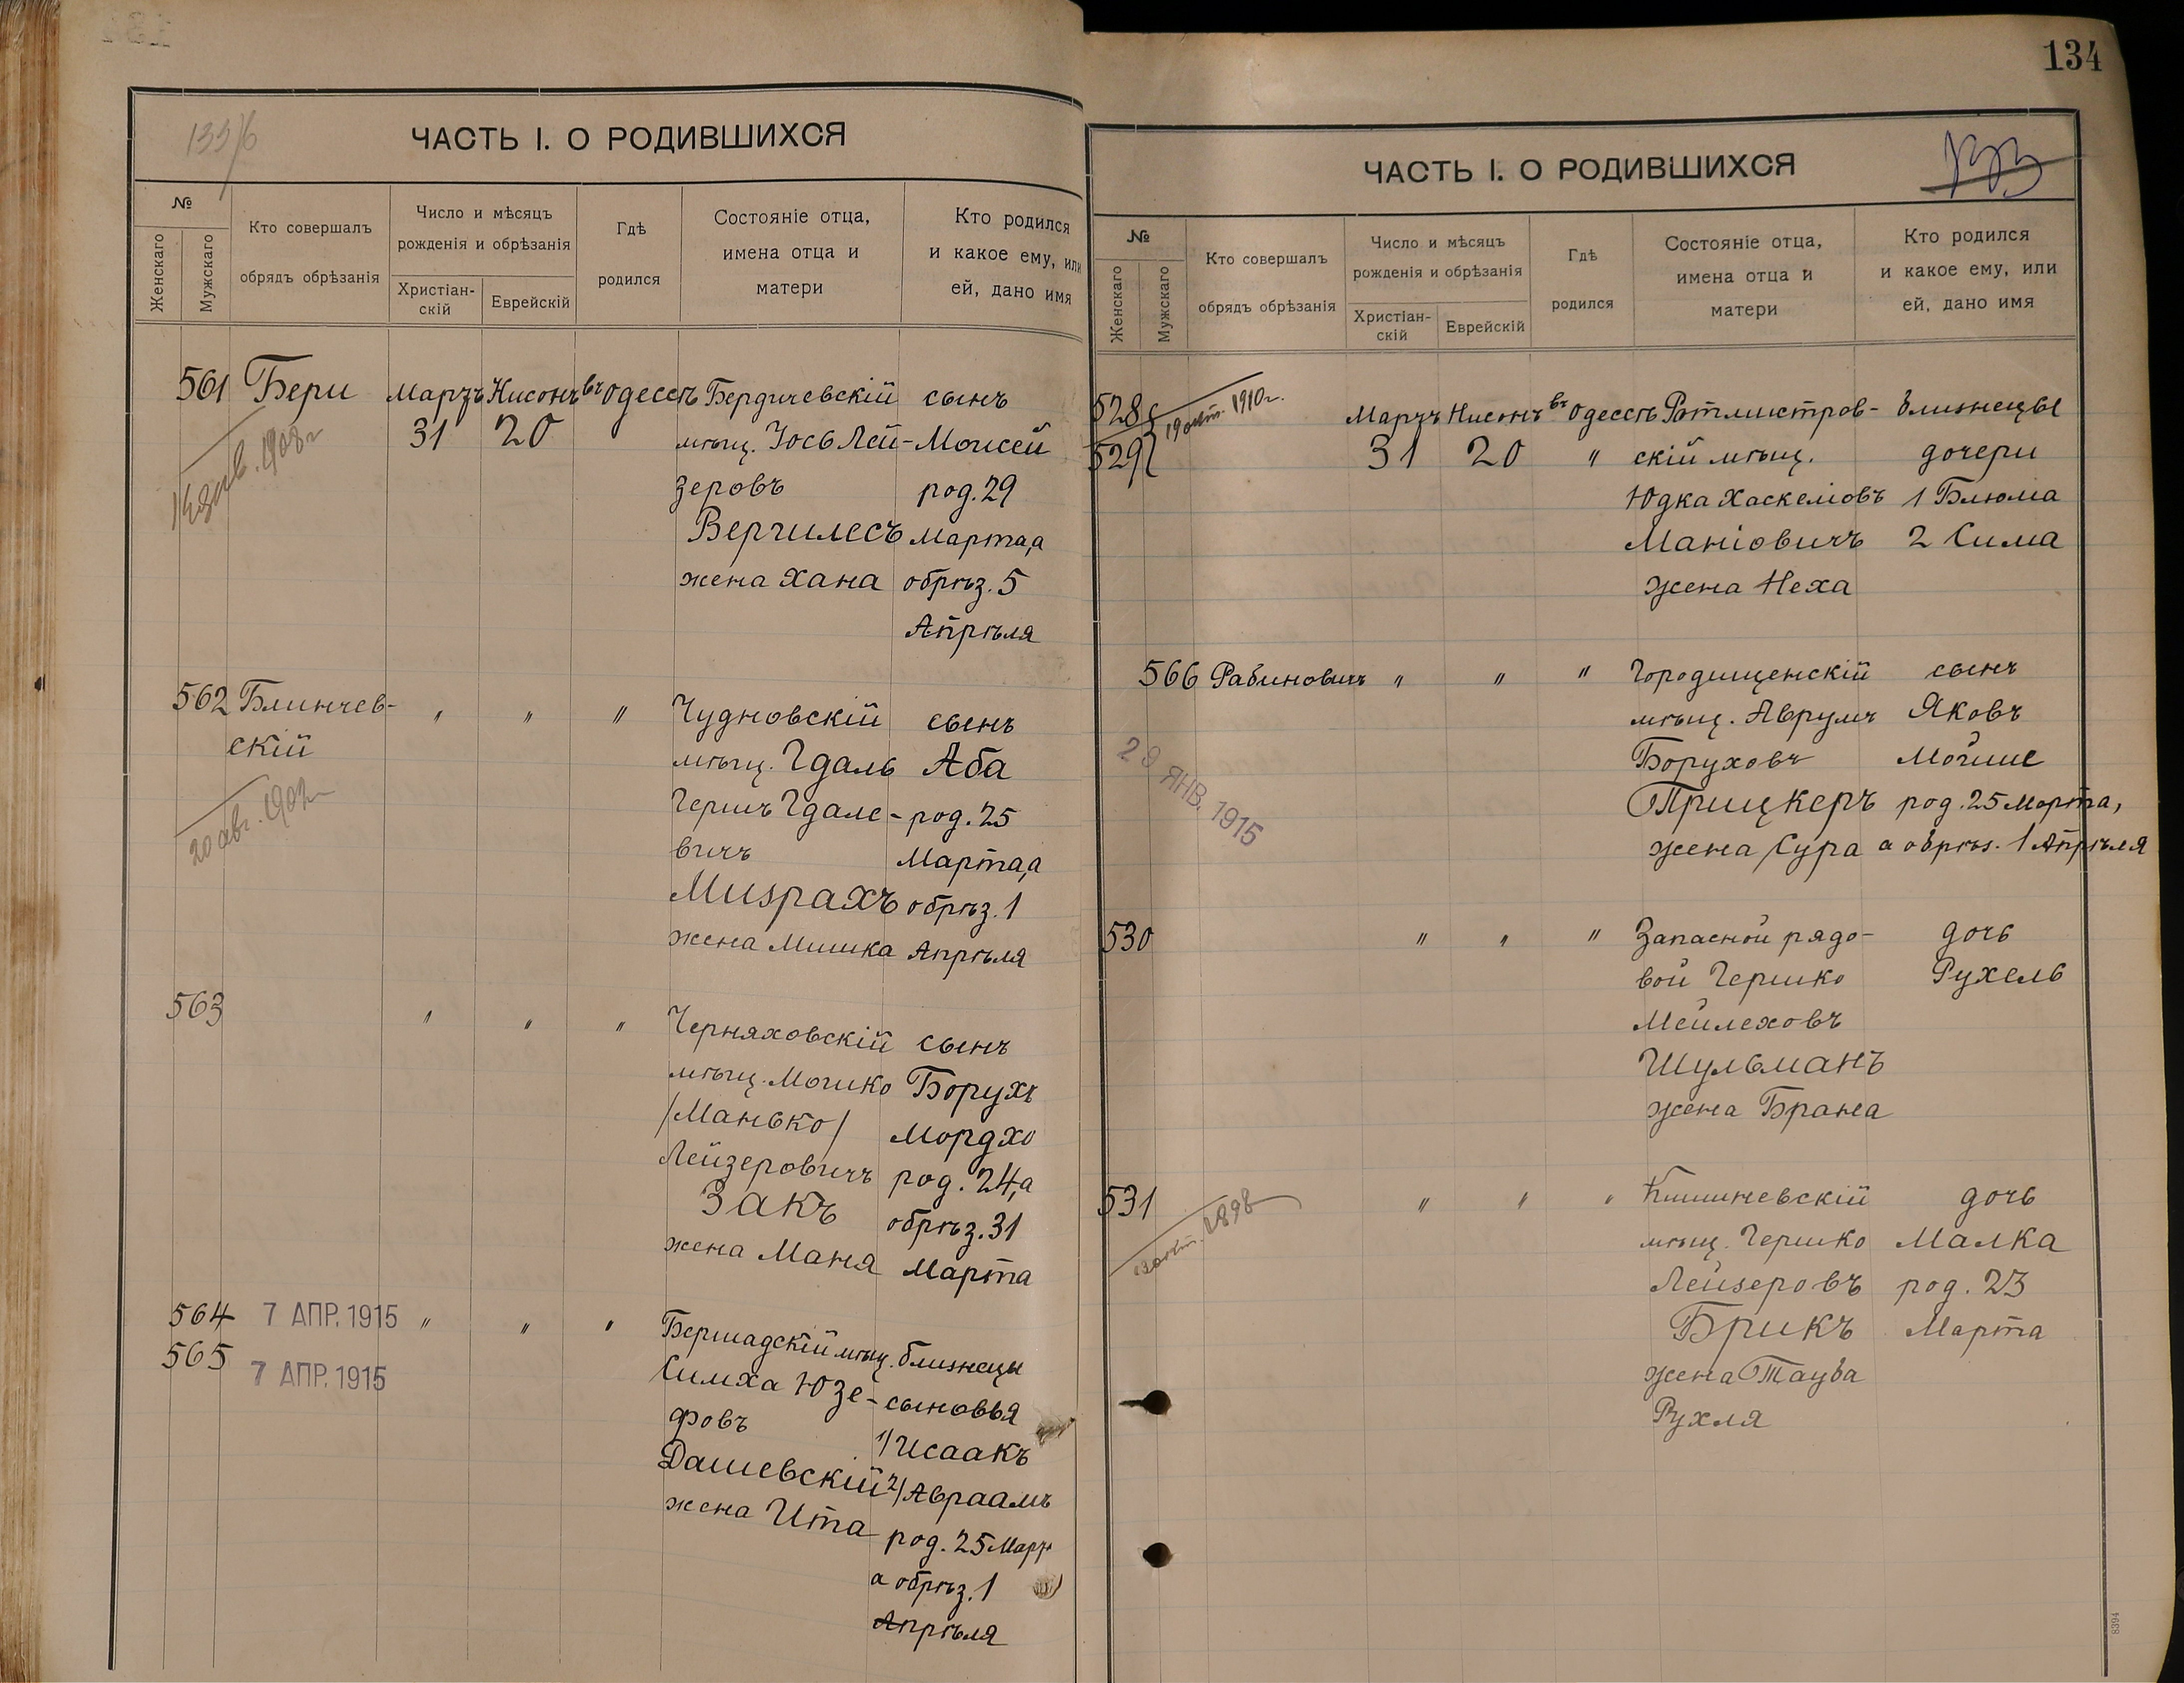 133/б
ЧАСТЬ I. О РОДИВШИХСЯ
№
Женскаго
Мужскаго
Кто совершалъ
обрядъ обрѣзанія
Число и мѣсяцъ
рожденія и обрѣзанія
Христіан-
скій
Еврейскій
Гдѣ
родился
Состояніе отца,
имена отца и
матери
Кто родился
и какое ему, или
ей, дано имя
561 Бери Мартъ Нисонъ въ Одессѣ Бердичевскій сынъ
31 20 мѣщ. Іось Лей- Моисей
зеровъ род. 29
Вергилесъ Марта, а
жена Хана обрѣз. 5
Апрѣля
1903 г
562 Блинчев- " " " Чудновскій сынъ
скій мѣщ. Гдаль Аба
Гершъ Гдале- род. 25
вичъ Марта, а
Мизрахъ обрѣз. 1
жена Мишка Апрѣля
20 авг. 1902
563 " " " Черняховскій сынъ
мѣщ. Мошко Борухъ
/Манько/ Мордхо
Лейзеровичъ род. 24, а
Закъ обрѣз. 31
жена Маня Марта
564 7 АПР. 1915 " " " Бершадскій мѣщ. близнецы
565 7 АПР. 1915 Симха Юзе- сыновья
фовъ 1/ Исаакъ
Дашевскій 2/ Авраамъ
жена Ита род. 25 Март
а обрѣз. 1
Апрѣля
134
ЧАСТЬ I. О РОДИВШИХСЯ
133
№
Женскаго
Мужскаго
Кто совершалъ
обрядъ обрѣзанія
Число и мѣсяцъ
рожденія и обрѣзанія
Христіан-
скій
Еврейскій
Гдѣ
родился
Состояніе отца,
имена отца и
матери
Кто родился
и какое ему, или
ей, дано имя
528 19 окт. 1910 г. Мартъ Нисонъ въ Одессѣ Ротмистров- близнецы
529 31 20 " скій мѣщ. дочери
Юдка Хаскеліовъ 1 Блюма
Маніовичъ 2 Сима
жена Неха
566 Рабиновичъ " " " Городищенскій сынъ
мѣщ. Аврумъ Яковъ
Боруховъ Мойше
Прицкеръ род. 25 Марта,
жена Сура а обрѣз. 1 Апрѣля
29 ЯНВ. 1915
530 " " " Запасной рядо- дочь
вой Гершко Рухель
Мейлеховъ
Шульманъ
жена Брана
531 " " " Кишиневскій дочь
мѣщ. Гершко Малка
Лейзеровъ род. 23
Брикъ Марта
жена Тауба
Рухля
1898
8394